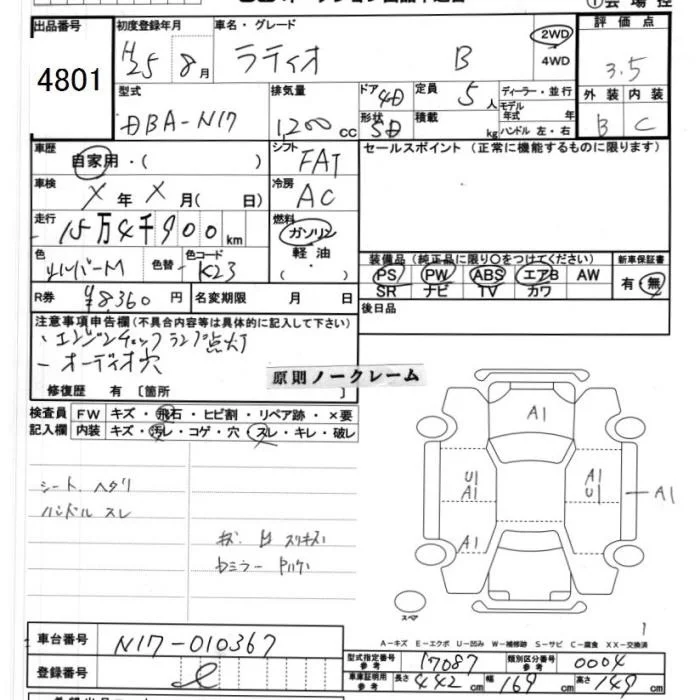 出品番号
4801
初度登録年月
H25年8月
車名・グレード
ラティオ B
2WD
4WD
評価点
3.5
型式
DBA-N17
排気量
1,200cc
ドア 4D
形状 SD
定員 5人
積載 kg
ディーラー・並行
モデル年式 年式
ハンドル 左・右
外装 内装
B C
車歴
自家用・( )
シフト
FAT
セールスポイント(正常に機能するものに限ります)
車検
X年X月( 日)
冷房
AC
走行
15万4千900km
燃料
ガソリン
軽油
・( )
色
シルバーM
色替
色コード
K23
装備品(純正品に限り○をつけてください)
新車保証書
PS PW ABS エアB AW
SR ナビ TV カワ
有・無
R券
¥8360円
名変期限 月 日
後日品
注意事項申告欄(不具合内容等は具体的に記入して下さい)
・エンジンチェックランプ点灯
・オーディオ穴
原則ノークレーム
修復歴 有 〔箇所 〕
検査員記入欄
FW キズ・飛石・ヒビ割・リペア跡・×要
内装 キズ・汚レ・コゲ・穴・スレ・キレ・破レ
シート ヘタリ
ハンドル スレ
A1
U1
A1
A1
U1
A1
A1
スペア
1
A-キズ E-エクボ U-凹み W-補修跡 S-サビ C-腐食 XX-交換済
車台番号
N17-010367
登録番号
型式指定番号 参考
17087
類別区分番号 参考
0004
車庫証明用 参考
長さ 442cm
幅 169cm
高さ 149cm